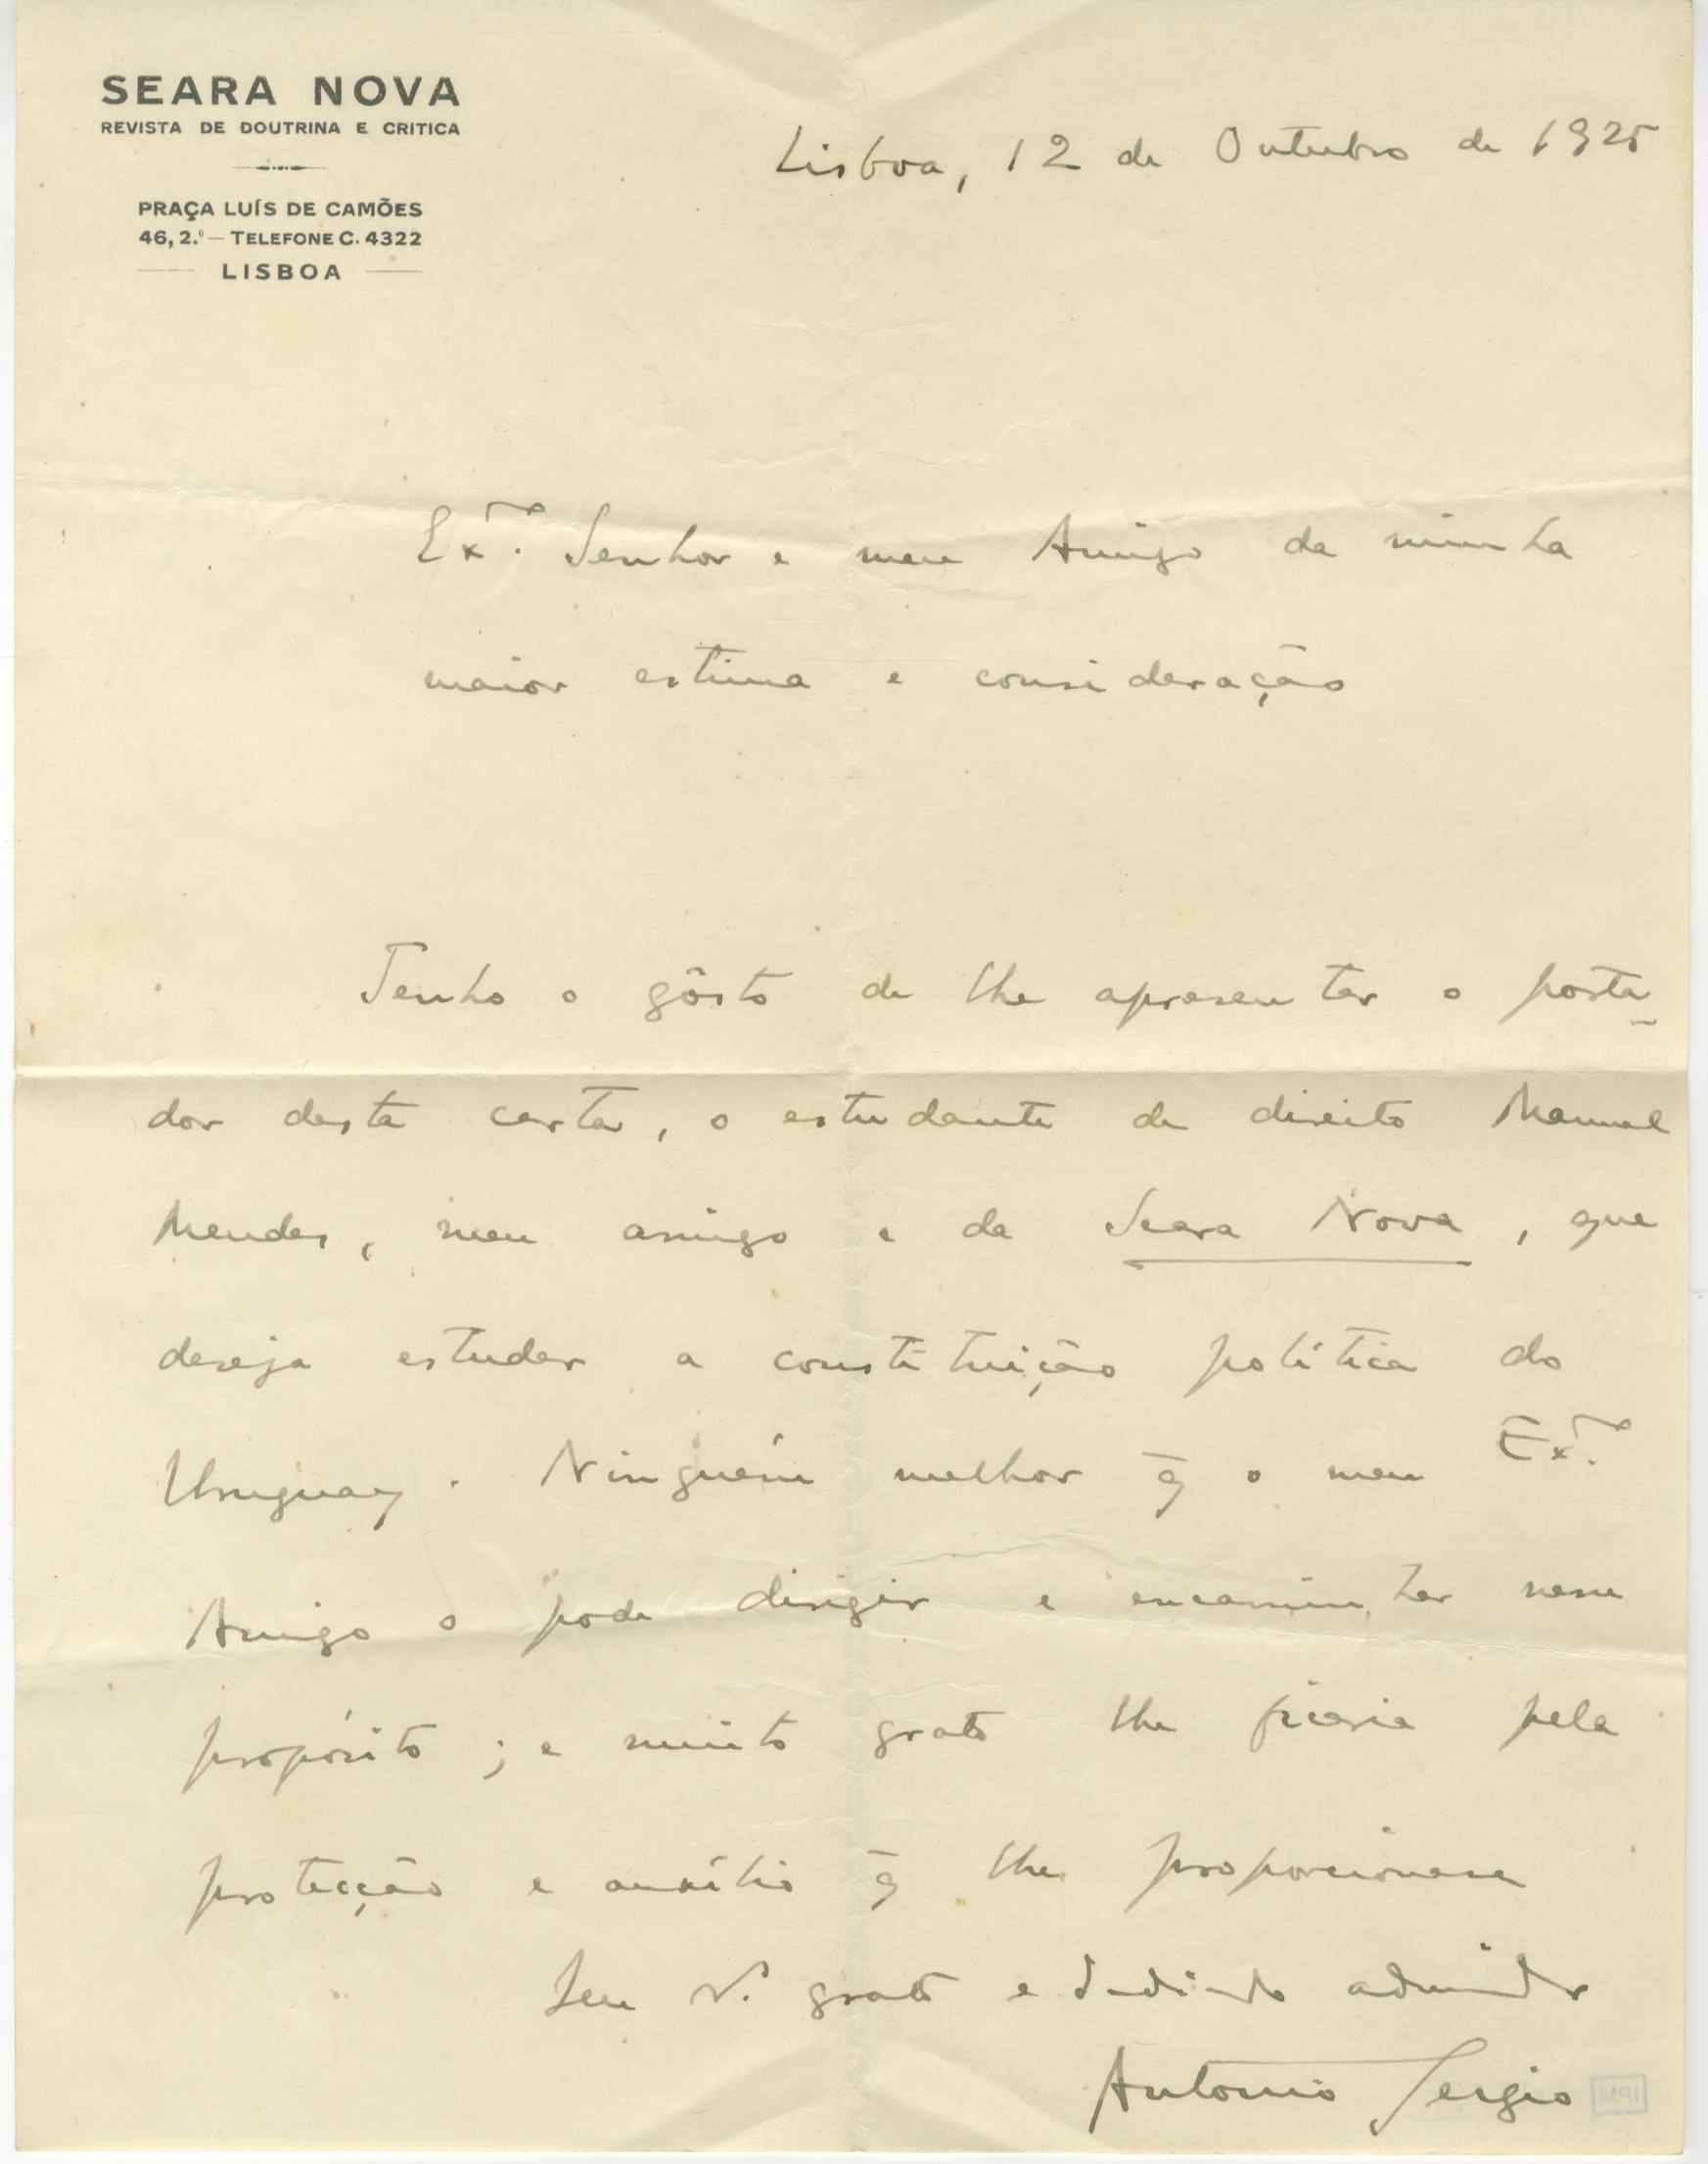 SEARA NOVA
REVISTA DE DOUTRINA E CRITICA
PRAÇA LUÍS DE CAMÕES
46, 2.º — TELEFONE C. 4322
LISBOA
Lisboa, 12 de Outubro de 1925
Ex.mo Senhor e meu Amigo da minha
maior estima e consideração
Tenho o gôsto de lhe apresentar o porta-
dor desta carta, o estudante de direito Manuel
Mendes, meu amigo e da Seara Nova, que
deseja estudar a constituição política do
Uruguay. Ninguém melhor q̄ o meu Ex.mo
Amigo o pode dirigir e encaminhar nesse
propósito; e muito grato lhe ficaria pela
protecção e auxílio q̄ lhe proporcionasse
Seu grato e dedicado admirador
Antonio Sergio